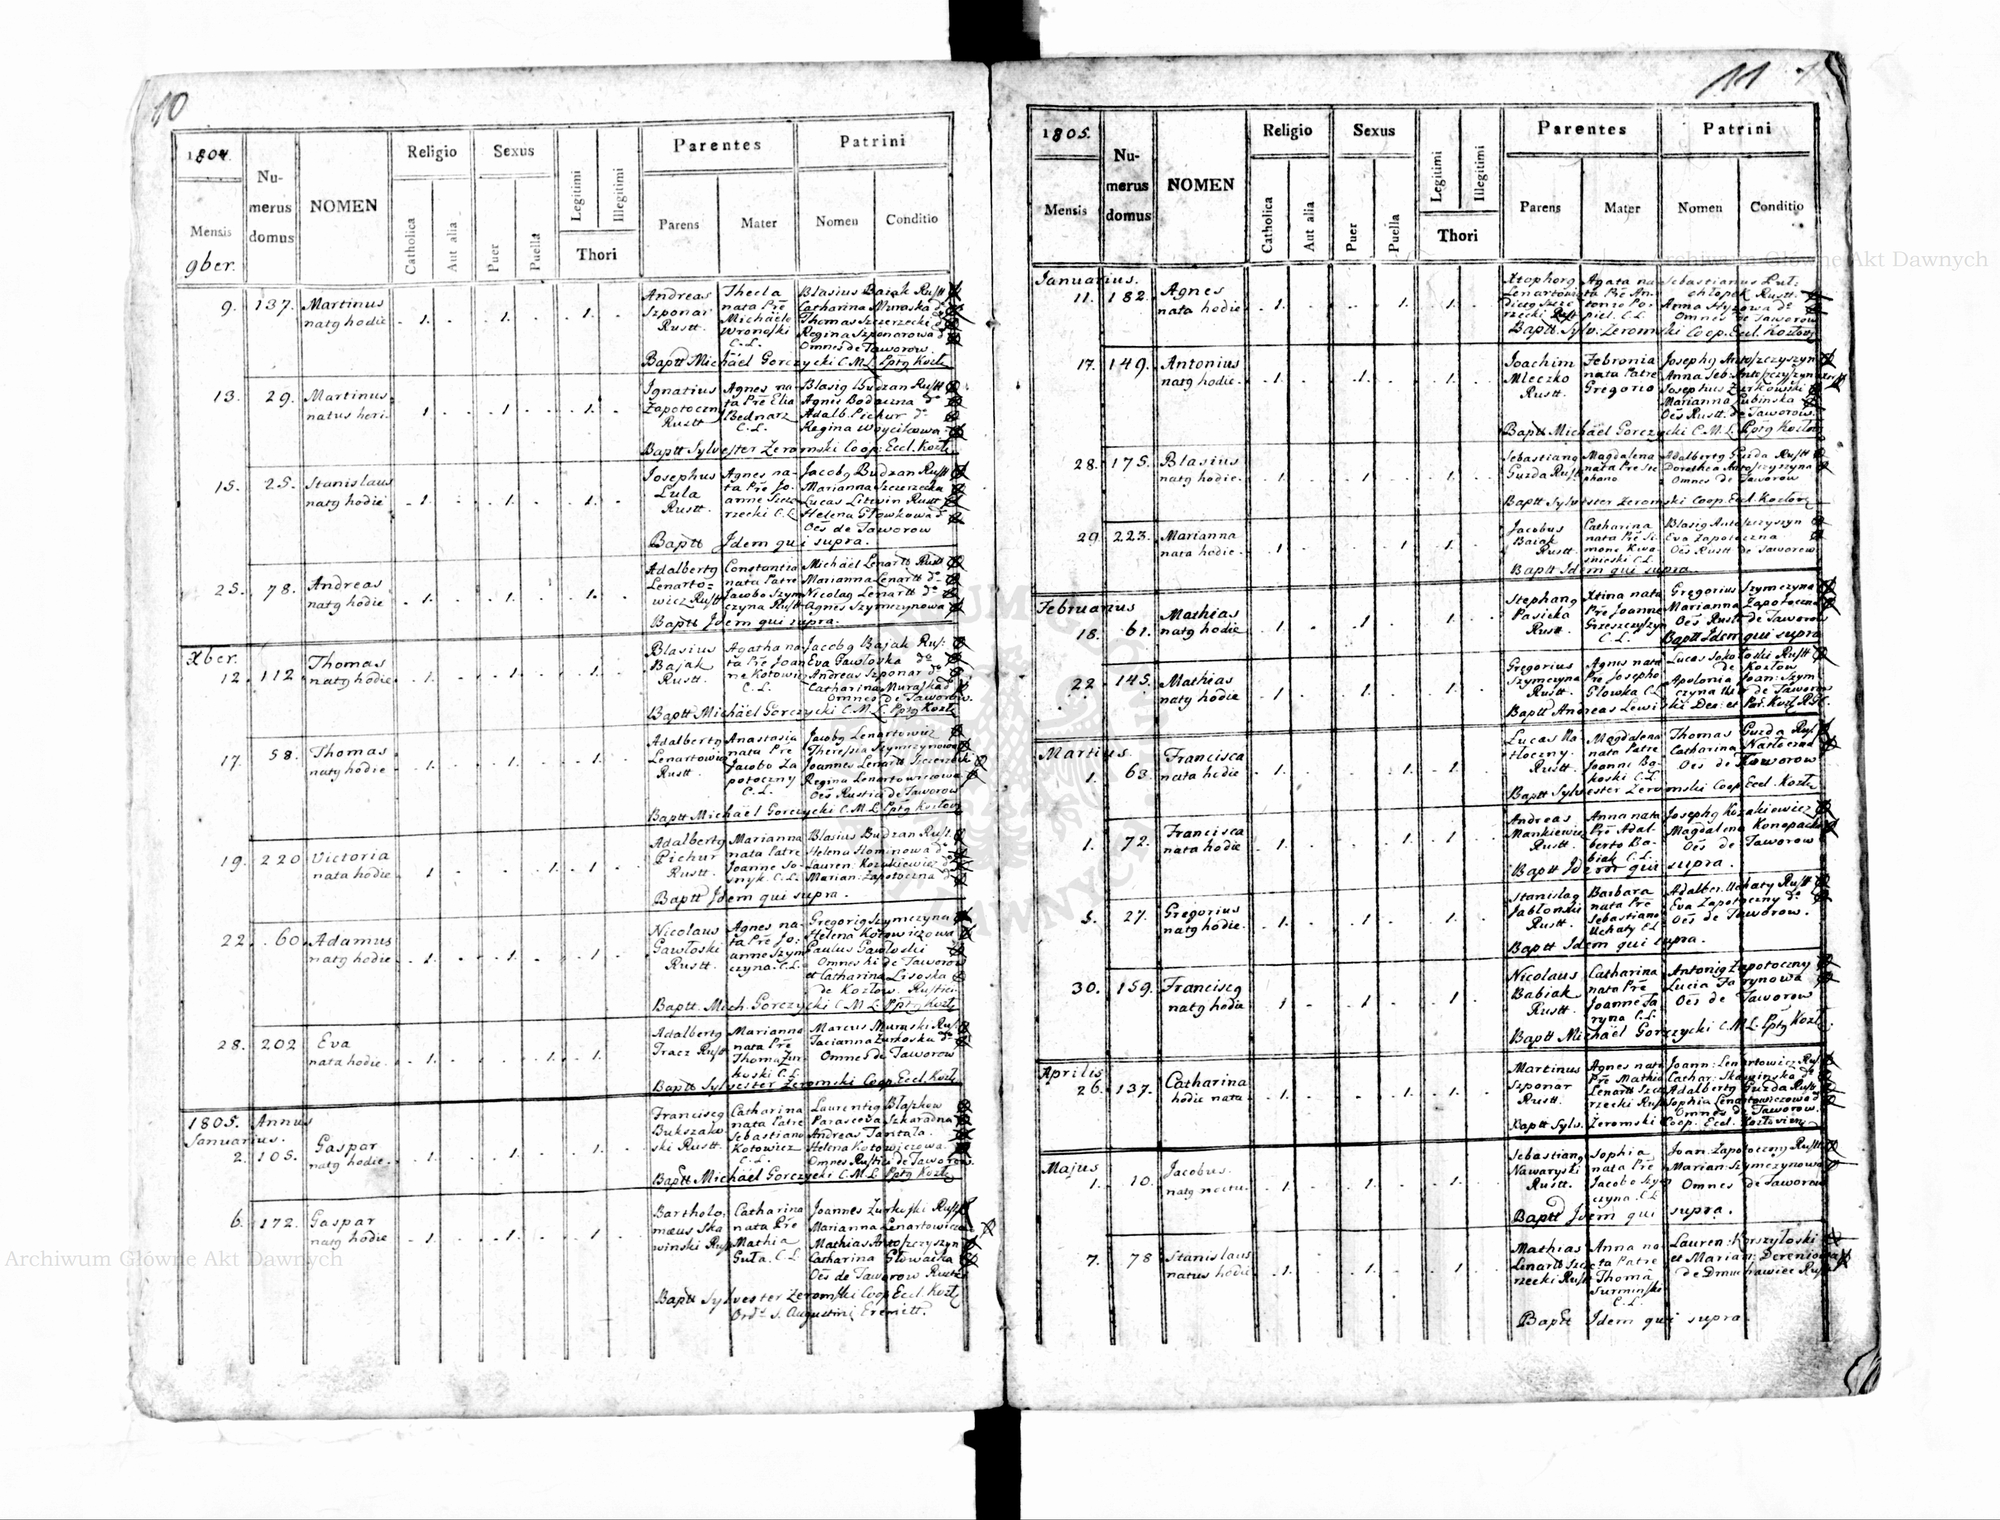 10
1804.
Mensis
9ber.
Numerus domus
NOMEN
Religio
Catholica
Aut alia
Sexus
Puer
Puella
Legitimi
Illegitimi
Thori
Parentes
Parens
Mater
Patrini
Nomen
Conditio
9. 137. Martinus
natg hodie
. 1. . 1. . 1. .
Andreas
Szponar
Rustt.
Thecla
nata Pre
Michaele
Wronoski
C.L.
Blasius Baiak Rustt
Catharina Muraska do
Thomas Szczerzecki do
Regina Szponarowa do
Omnes de Jaworow.
Baptt Michäel Gorczycki C.M.L. Pptg Kozł.
13. 29. Martinus
natus heri.
1. . 1. . 1.
Ignatius
Zapotoczny
Rustt
Agnes na
ta Pre Elia
Bednarz
C.L.
Blasig Budzan Rustt
Agnes Bodaczna do
Adalb. Pichur do
Regina Woycikowa
Baptt Sylvester Zeromski Coop. Eccl. Kozł.
15. 25. Stanislaus
natg hodie
. 1. . 1. . 1.
Josephus
Lula
Rustt.
Agnes na-
ta Pre Jo-
anne Szcze
rzecki C.L.
Jacobg Budzan Rustt
Marianna Szczerzecka
Lucas Litwin Rustt
Helena Głowkowa do
Oes de Jaworow
Baptt Idem qui supra.
25. 78. Andreas
natg hodie
. 1. . 1. . 1. .
Adalbertg
Lenarto=
wicz Rustt
Constantia
nata Patre
Jacobo Szym
czyna Rustt
Michäel Lenartt Rustt
Marianna Lenartt do
Nicolag Lenartt do
Agnes Szymczynowa
Baptt Idem qui supra.
Xber.
12. 112 Thomas
natg hodie.
. 1. . 1. . 1.
Blasius
Bajak
Rustt.
Agatha na
ta Pre Joan
ne Kotowicz
C.L.
Jacobg Bajak Rus:
Eva Gawłoska do
Andreas Szponar do
Catharina Muraska do
Omnes de Jaworow.
Baptt Michäel Gorczycki C.M.L. Pptg Kozł.
17. 58. Thomas
natg hodie
. 1. . 1. . 1.
Adalbertg
Lenartowicz
Rustt.
Anastasia
nata Pre
Jacobo Za
potoczny
C.L.
Jacobg Lenartowicz
Theressia Szymczynowa
Joannes Lenartt Szczerzecki
Regina Lenartowiczowa
Oes Rustici de Jaworow
Baptt Michäel Gorczycki C.M.L. Pptg Kozłow
19. 220 Victoria
nata hodie
. 1 . . 1. 1. .
Adalbertg
Pichur
Rustt.
Marianna
nata Patre
Joanne So-
snyk. C.L.
Blasius Budzan Rust.
Helena Hominowa do
Lauren: Kozakiewicz do
Marian: Zapotoczna
Baptt Idem qui supra.
22. 60. Adamus
natg hodie
. 1. . 1. . 1. .
Nicolaus
Gawłoski
Rustt.
Agnes na-
ta Pre Jo:
anne Szym
czyna. C.L.
Gregorig Szymczyna
Helena Kotowiczowa
Paulus Gawłoski
Omnes hi de Jaworow
et Catharina Lesoska
de Kozłow. Rustici.
Baptt. Mich. Gorczycki C.M.L. Pptg Kozł.
28. 202 Eva
nata hodie.
. 1. . . 1. 1.
Adalbertg
Tracz Rustt
Marianna
nata Pre
Thoma Zur
koski C.L.
Marcus Muraski Rust
Tacianna Zurkoska do
Omnes de Jaworow
Baptt Sylvester Zeromski Coop. Eccl. Kozł.
1805. Annus
Januarius.
2. 105. Gaspar
natg hodie.
. 1. . 1. . 1. .
Franciscg
Bukszało
ski Rustt.
Catharina
nata Patre
Sebastiano
Kotowicz
C.L.
Laurentig Błaszkow
Parasceda Szkaradna
Andreas Tantala.
Helena Kotowiczowa.
Omnes Rustici de Jaworow.
Baptt Michäel Gorczycki C.M.L. Pptg Kozł.
6. 172. Gaspar
natg hodie
. 1. . 1. . 1. .
Bartholo:
mæus Ska
winski Rustt
Catharina
nata Pre
Mathia
Guła. C.L
Joannes Zurkoski Rustt
Marianna Lenartowicz
Mathias Antoszczyszyn
Catharina Głowacka
Oes de Jaworow Rustt
Baptt Sylvester Zeromski Coop Eccl. Kozł.
Ordis S. Augustini Eremitt.
11
1805.
Mensis
Numerus domus
NOMEN
Religio
Catholica
Aut alia
Sexus
Puer
Puella
Legitimi
Illegitimi
Thori
Parentes
Parens
Mater
Patrini
Nomen
Conditio
Januarius.
11. 182. Agnes
nata hodie.
. 1. . . 1. . 1.
Xtophorg
Agata na
ta Pre An-
tonio Po-
piel. C.L.
Sebastianus
chłopek Rustt.
Anna Hyzowa do
Omnes de Jaworow
Baptt. Sylv: Zeromski Coop. Eccl. Kozłov
17. 149. Antonius
natg hodie.
. 1. . 1. . 1.
Joachim
Mleczko
Rustt.
Febronia
nata Patre
Gregorio
Josephg Antoszczyszyn
Anna Seb: Antoszczyszyn
Josephus Zurkowski
Marianna Lubinska
Oes Rustt. de Jaworow.
Baptt Michäel Gorczycki C.M.L. Pptg Kozłow
28. 175. Blasius
natg hodie.
. 1. . 1. . 1.
Sebastiang
Guzda Rustt
Magdalena
nata Pre Ste
phano
Adalbertg Guzda Rustt
Dorothea Antoszczyszyna
Omnes de Jaworow
Baptt Sylvester Zeromski Coop. Eccl. Kozlov.
29. 223. Marianna
nata hodie.
1. . . 1. 1.
Jacobus
Baiak
Rustt.
Catharina
nata Pre Si-
mone Kwa
snieski C.L
Blasig Antoszczyszyn
Eva Zapotoczna
Oes Rustt de Jaworow
Baptt Idem qui supra.
Februarius
18. 61. Mathias
natg hodie
1. . 1. . 1.
Stephang
Pasieka
Rustt.
Xtina nata
Pre Joanne
C.L.
Gregorius Szymczyna
Marianna Zapotoczna
Oes Rustt de Jaworow
Baptt Idem qui supra
22 145. Mathias
natg hodie
. 1. . 1. . 1.
Gregorius
Szymczyna
Rustt.
Agnes nata
Pre Josepho
Głowka C.L
Lucas Sokołoski Rustt
de Kozłow
Apolonia Joan: Szym-
czyna Uxor de Jaworow
Baptt Andreas Lewiski Dec. et Par. Kozł.
Martius.
1. 63. Francisca
nata hodie
. 1. . . 1. 1.
Lucas Na
tłoczny.
Rustt.
Magdalena
nata Patre
Joanni Bo-
koski C.L.
Thomas Guzda Rus.
Catharina Natłoczna
Oes de Jaworow
Baptt Sylvester Zeromski Coop Eccl. Kozł.
1. 72. Francisca
nata hodie
. 1. . . 1. 1.
Andreas
Mankiewicz
Rustt.
Anna nata
Pre Adal-
berto Ba-
biak C.L.
Josephg Kozakiewicz
Magdalena Konopacka
Oes de Jaworow
Baptt Idem qui supra.
5. 27. Gregorius
natg hodie.
. 1. . 1. . 1.
Stanislag
Jabłonski
Rustt.
Barbara
nata Pre
Sebastiano
Uchaty C.L
Adalber. Uchaty Rustt
Eva Zapotoczny do
Oes de Jaworow.
Baptt Idem qui supra.
30. 159. Franciscg
natg hodie
. 1 . 1. . 1.
Nicolaus
Babiak
Rustt.
Catharina
nata Pre
Joanne Ja
ryna C.L.
Antonig Zapotoczny
Lucia Jarynowa
Oes de Jaworow
Baptt Michäel Gorczycki C.M.L. Pptg Kozł.
Aprilis
26. 137. Catharina
hodie nata.
. 1. . . 1. 1.
Martinus
Szponar
Rustt.
Agnes nata
Pre Mathia
Lenartt Szcze
rzecki Rustt
Joann: Lenartowicz Rust
Cathar: Skawinska do
Adalbertg Guzda Rustt
Sophia Lenartowiczowa do
Omnes de Jaworow.
Baptt Sylv. Zeromski Coop. Eccl. Kozłovien.
Majus
1. 10. Jacobus.
natg noctu.
. 1. . 1. . 1.
Sebastiang
Nawaryski
Rustt.
Sophia
nata Pre
Jacobo Szym
czyna. C.L
Joan: Zapotoczny Rustt
Marian: Szymczynowa
Omnes de Jaworow
Baptt Idem qui supra.
7. 78 Stanislaus
natus hodie
. 1. . 1. . 1.
Mathias
Lenartt Szcze
rzecki Rustt
Anna na
ta Patre
Thoma
Surminski
C.L.
Lauren: Korszyłoski
et Marian: Dereniowa
de Dmuchawiec Rust
Baptt Idem qui supra
Archiwum Główne Akt Dawnych
Archiwum Główne Akt Dawnych